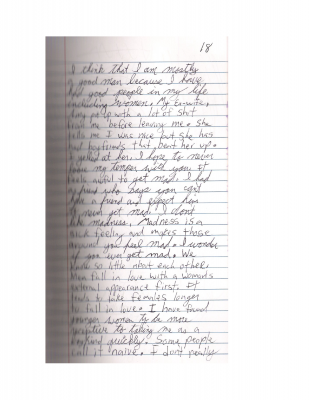 18
I think that I am mostly
a good man because I have
had good people in my life
including women. My ex-wife,
put up with a lot of shit
from me before leaving me. She
told me I was nice but she has
had boyfriends that beat her up.
I yelled at her. I hope to never
loose my temper with you. It
feels awful to get mad. I had
a friend who says you can't
have a friend and expect him
to never get mad. I don't
like madness. Madness is a
sick feeling and makes those
around you feel mad. I wonder
if you ever get mad. We
know so little about each other.
Men fall in love with a woman's
external appearance first. It
tends to take females longer
to fall in love. I have found
younger women to be more
receptive to taking me as a
boyfriend quickly. Some people
call it naive. I don't really